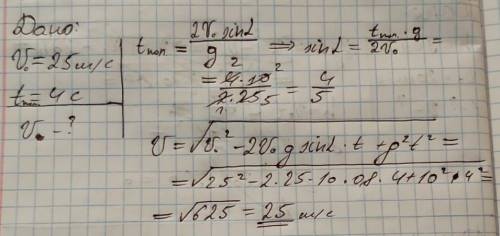 Дано:
V₀ = 25 м/с
tпол = 4 с
V - ?
tпол. = 2V₀ sinL / g ⟹ sinL = tпол. · g / 2V₀ =
= 4 · 10 / 2 · 25 = 4 / 5
V = √(V₀² - 2V₀ g sinL · t + g²t²) =
= √(25² - 2 · 25 · 10 · 0.8 · 4 + 10² · 4²) =
= √625 = 25 м/с